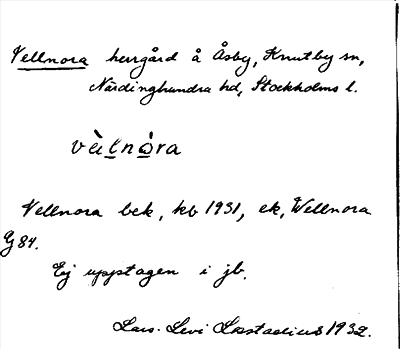 Vellnora herrgård å Åsby, Knutby sn,
Närdinghundra hd, Stockholms l.
vèlnóra
Vellnora bek, kb 1931, ek, Wellnora
G 84.
Ej upptagen i jb.
Lars-Levi Læstadius 1932.